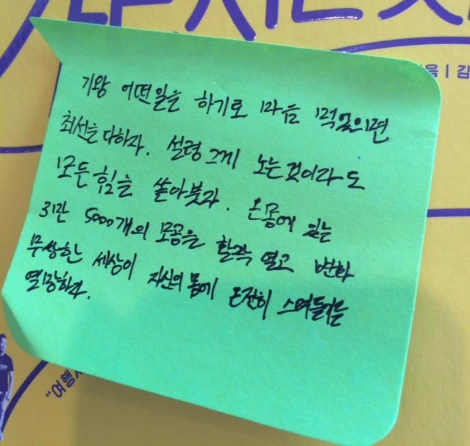 기왕 어떤 일을 하기로 마음 먹었으면
최선을 다하라. 설령 그게 노는 것이라도
모든 힘을 쏟아붓자. 온몸에 있는
3만 5000개의 모공을 활짝 열고 변화
무쌍한 세상이 자신의 몸에 온전히 스며들기를
열망하라.